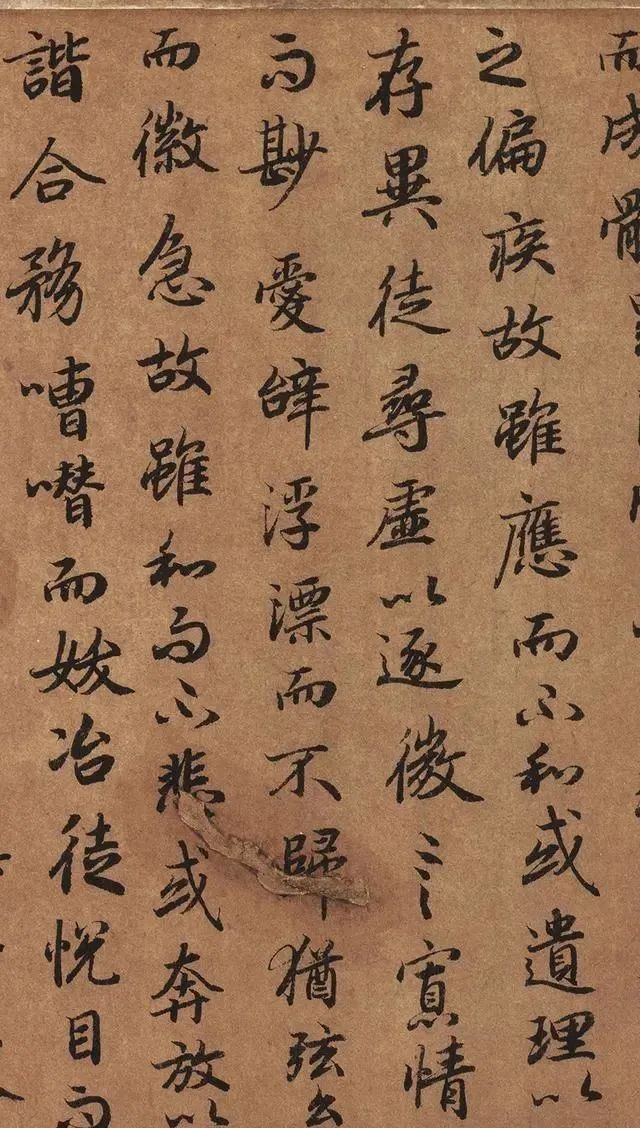 而成體
之偏疾故雖應而不和或遺理以
存異徒尋虛以逐微言寡情
而尠愛辝浮漂而不歸猶弦么
而徽急故雖和而不悲或奔放以
諧合務嘈噆而妖冶徒悅目而